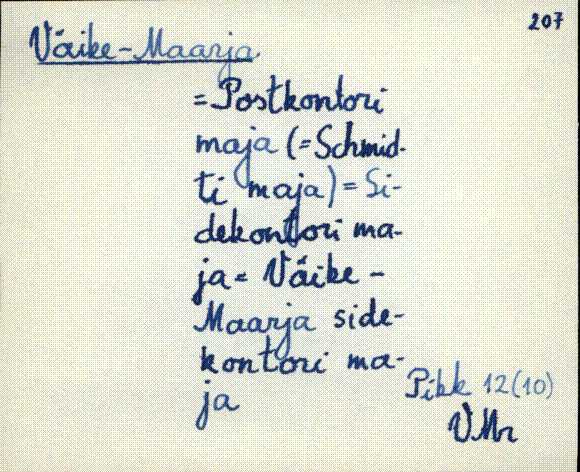 207
Väike-Maarja
= Postkontori
maja (= Schmid-
ti maja) = Si-
dekontori ma-
ja = Väike-
Maarja side-
kontori ma-
ja
Pikk 12(10)
VMr